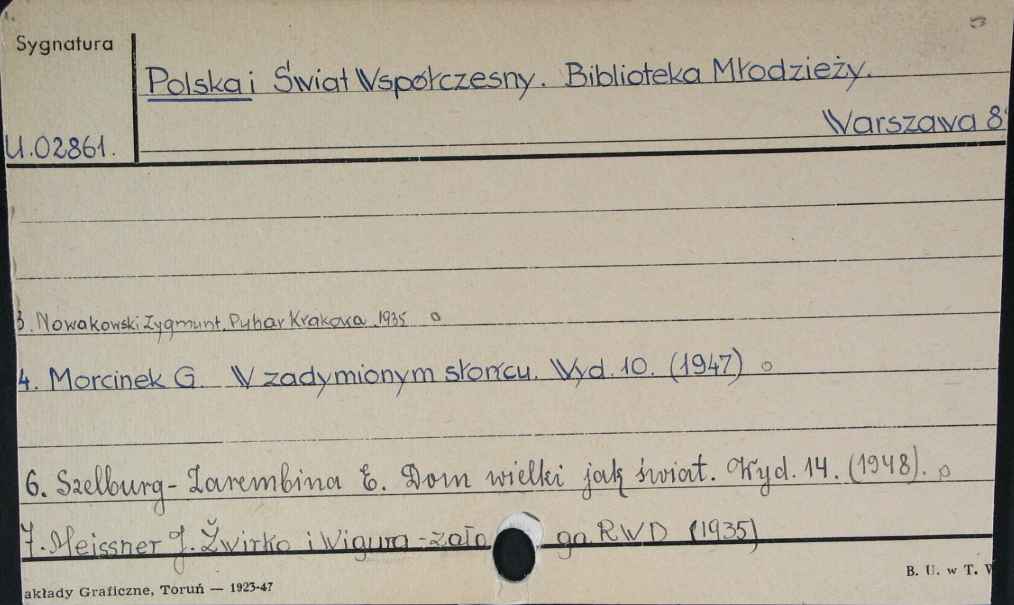 Sygnatura
Polska i Świat Współczesny. Biblioteka Młodzieży.
Warszawa 8°
U.02861.
3. Nowakowski Zygmunt, Puhar Krakowa 1935 o
4. Morcinek G. W zadymionym słońcu. Wyd. 10. (1947) o
6. Szelburg-Zarembina E. Dom wielki jak świat. Wyd. 14. (1948). o
7. Meissner J. Żwirko i Wigura - zało ga RWD (1935)
akłady Graficzne, Toruń — 1923-47
B. U. w T. W